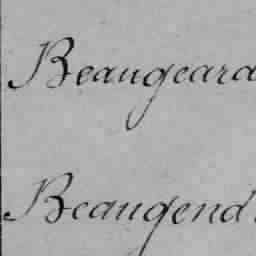 Beaugeard
Beaugend